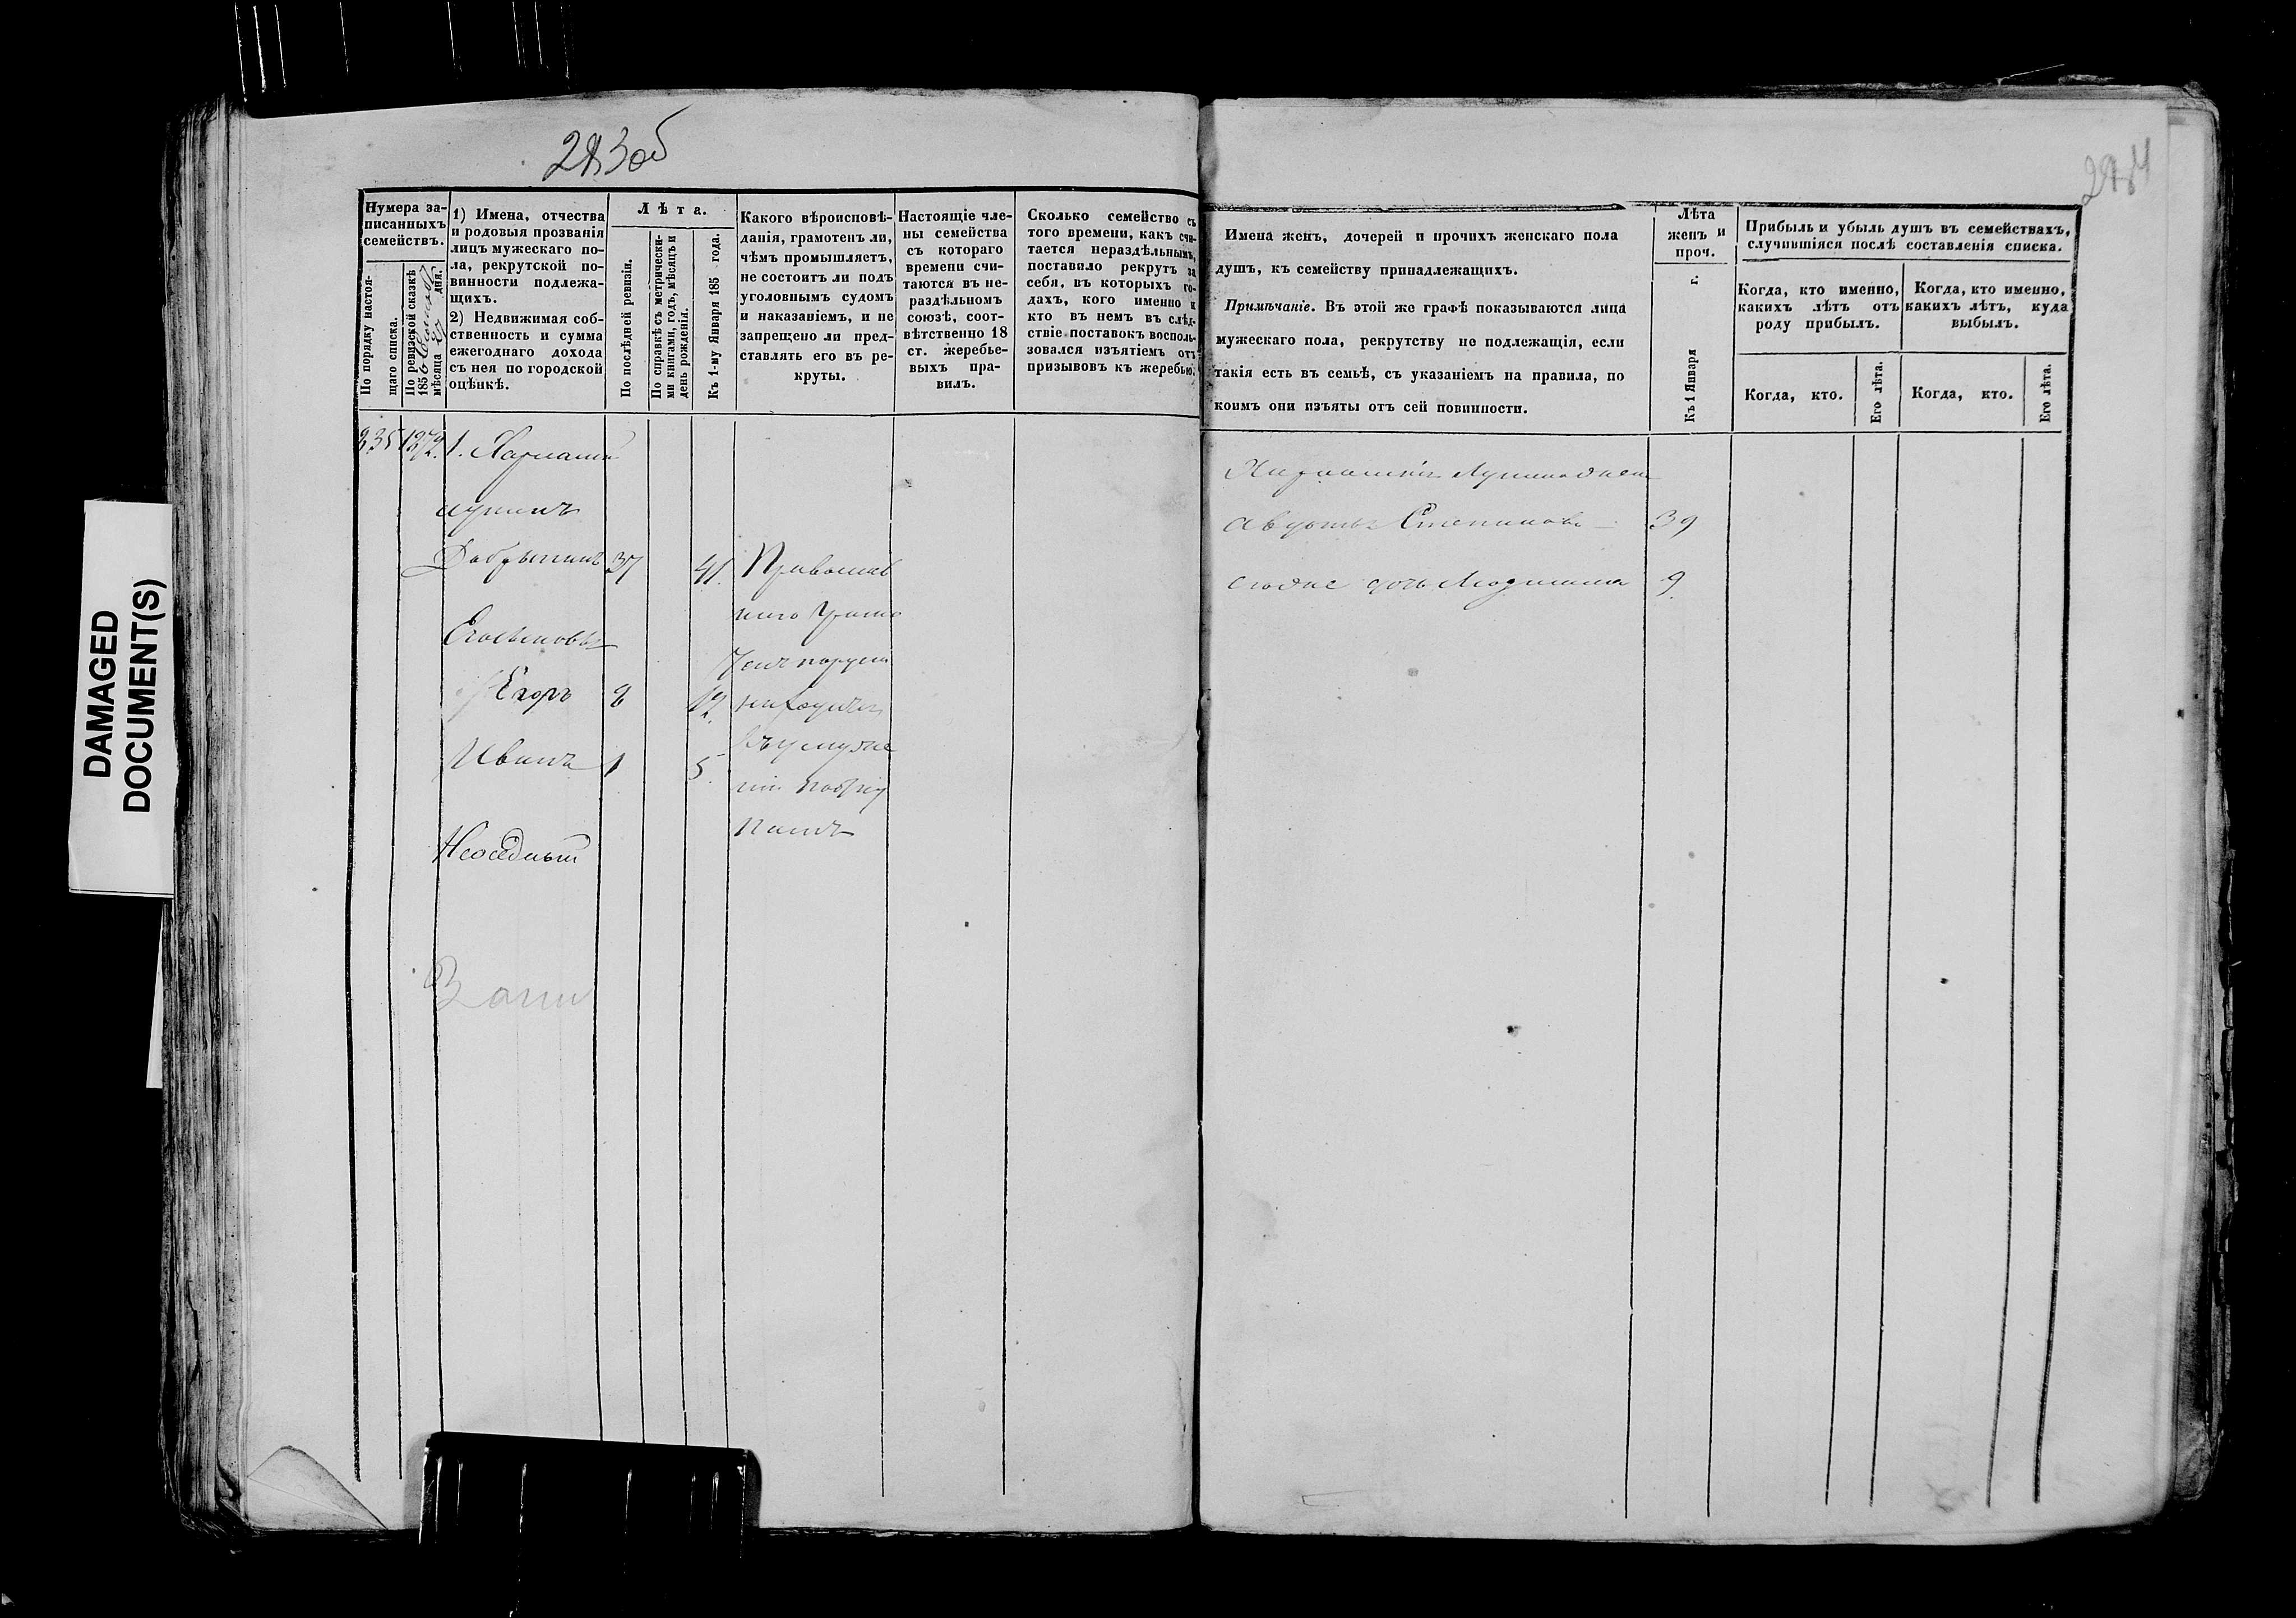 283об
284
DAMAGED
DOCUMENT(S)
Нумера за-
писанныхъ
семействъ.
По порядку настоя-
щаго списка.
По ревизской сказкѣ
185
мѣсяца дня.
1) Имена, отчества
и родовыя прозванія
лицъ мужескаго по-
ла, рекрутской по-
винности подлежа-
щихъ.
2) Недвижимая соб-
ственность и сумма
ежегоднаго дохода
съ нея по городской
оцѣнкѣ.
Лѣта.
По послѣдней ревизіи.
По справкѣ съ метрически-
ми книгами, годъ, мѣсяцъ и
день рожденія.
Къ 1-му Января 185 года.
Какого вѣроисповѣ-
данія, грамотенъ ли,
чѣмъ промышляетъ,
не состоитъ ли подъ
уголовнымъ судомъ
и наказаніемъ, и не
запрещено ли пред-
ставлять его въ ре-
круты.
Настоящіе чле-
ны семейства
съ котораго
времени счи-
таются въ не-
раздѣльномъ
союзѣ, соот-
вѣтственно 18
ст. жеребье-
выхъ пра-
вилъ.
Сколько семейство съ
того времени, какъ счи-
тается нераздѣльнымъ,
поставило рекрутъ за
себя, въ которыхъ го-
дахъ, кого именно и
кто въ немъ въ слѣд-
ствіе поставокъ восполь-
зовался изъятіемъ отъ
призывовъ къ жеребью.
Имена женъ, дочерей и прочихъ женскаго пола
душъ, къ семейству принадлежащихъ.
Примѣчаніе. Въ этой же графѣ показываются лица
мужескаго пола, рекрутству не подлежащія, если
такія есть въ семьѣ, съ указаніемъ на правила, по
коимъ они изъяты отъ сей повинности.
Лѣта
женъ и
проч.
Къ 1 Января г.
Прибыль и убыль душъ въ семействахъ,
случившіяся послѣ составленія списка.
Когда, кто именно,
какихъ лѣтъ отъ
роду прибылъ.
Когда, кто именно,
какихъ лѣтъ, куда
выбылъ.
Когда, кто.
Его лѣта.
Когда, кто.
Его лѣта.
335 1272. 1.
Добрынинъ 37 41.
Его сыновья
Егоръ 8 12.
Иванъ 1 5.
Неоседлый
Степанова 39
дочь 9.